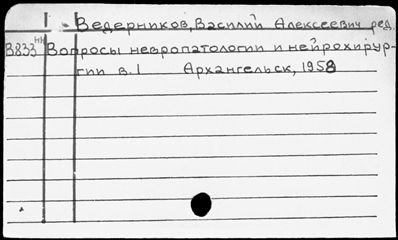 Ведерников, Василий Алексеевич ред.
В833нн Вопросы невропатологии и нейрохирур-
гии в.1 Архангельск, 1958